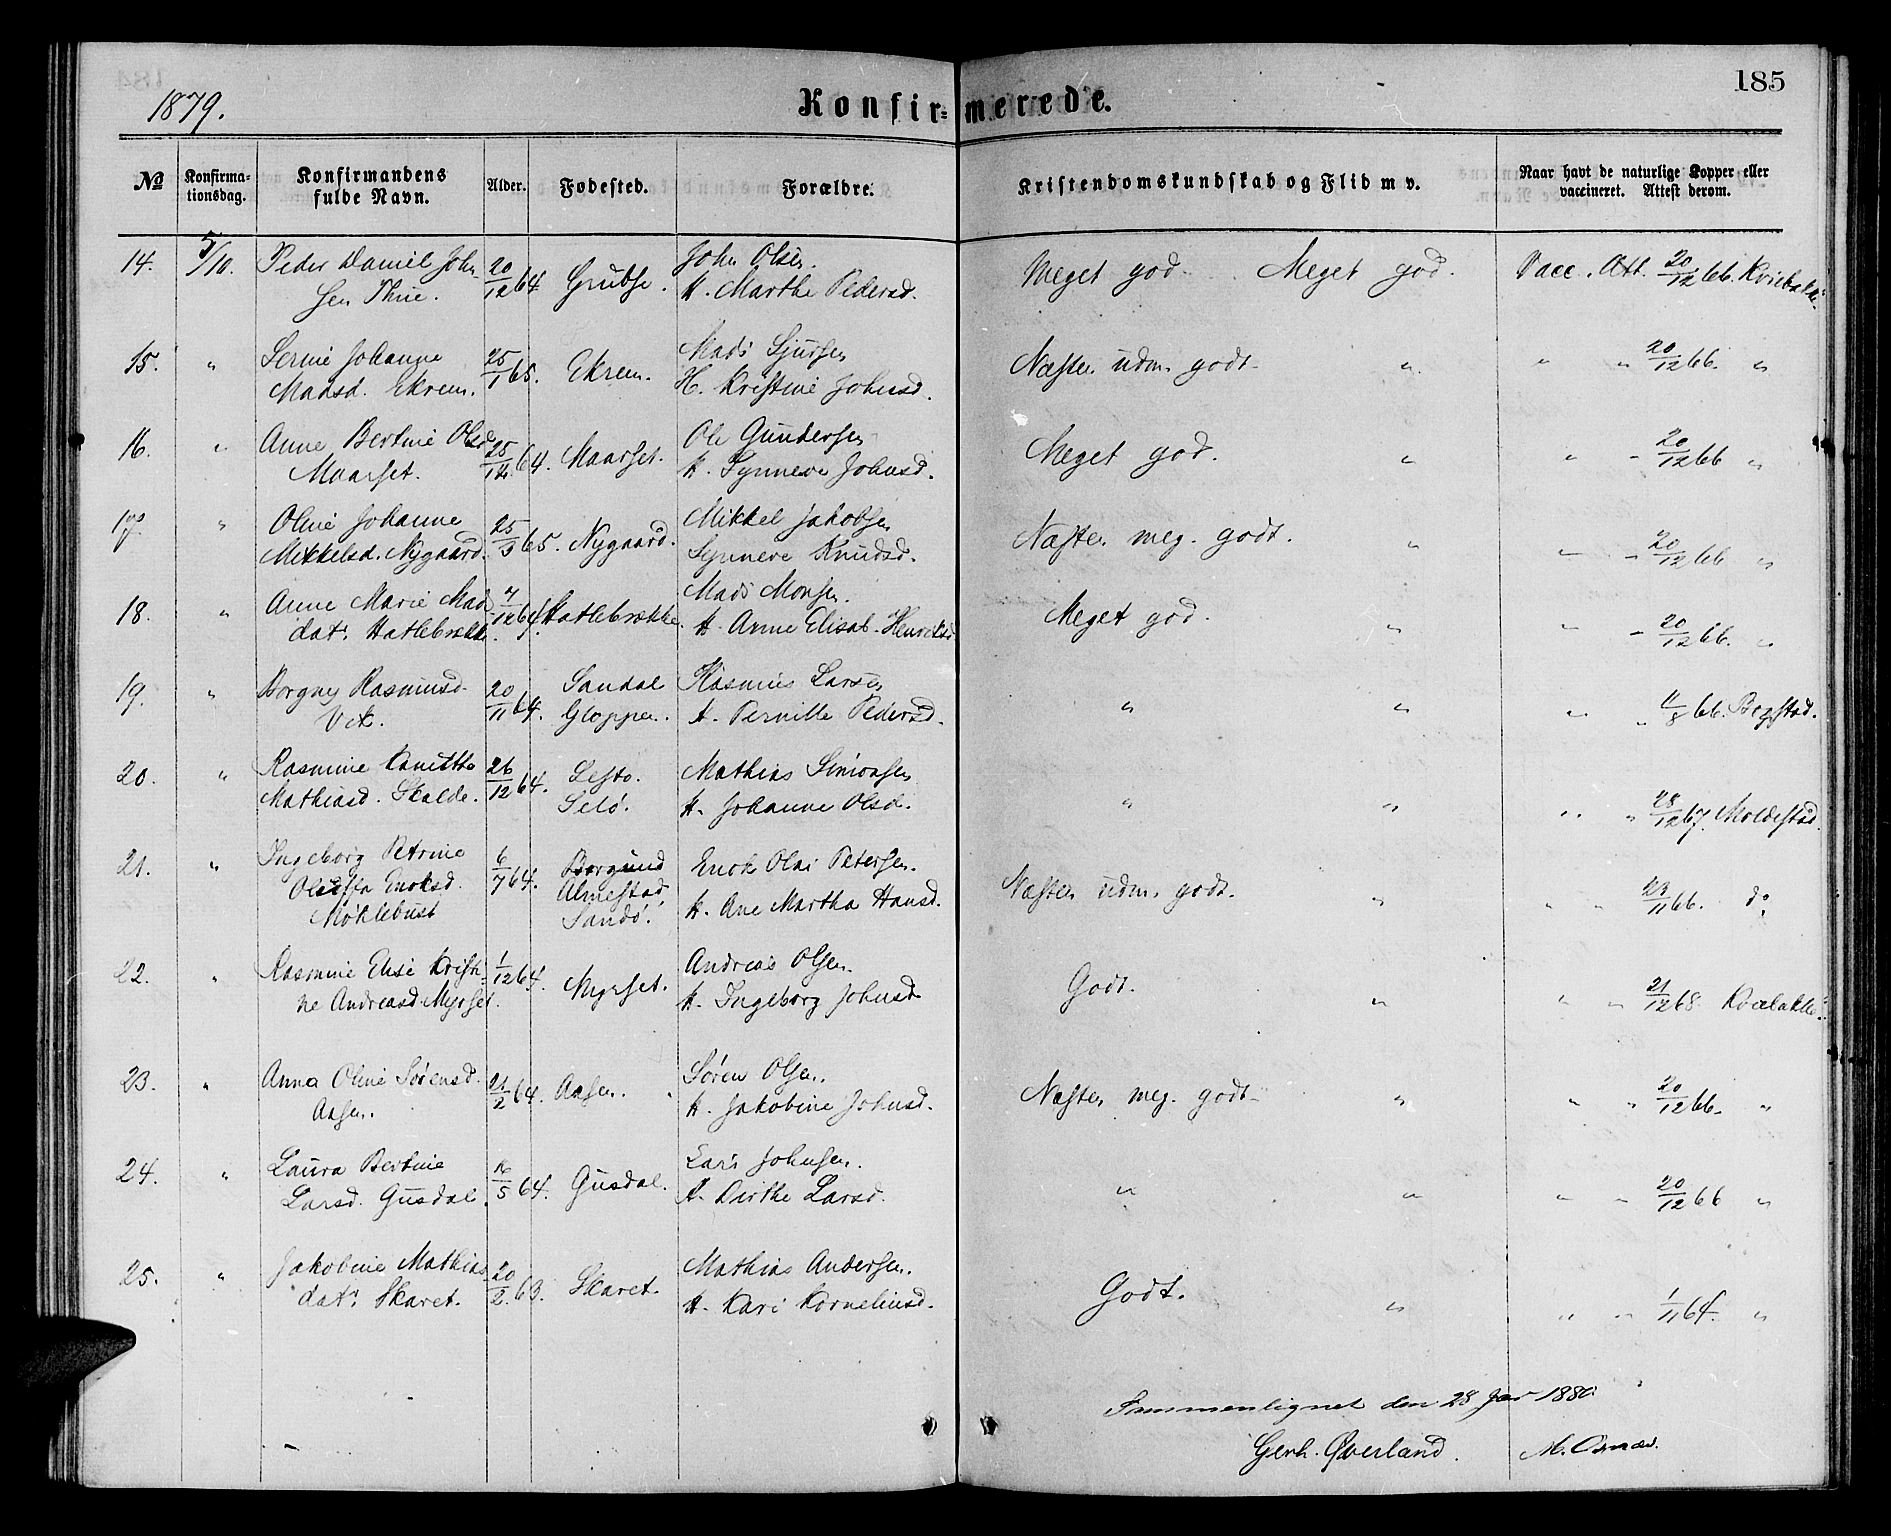 1879.
Konfirmerede.
185
No
Konfirma-
tionsdag.
Konfirmandens
fulde Navn.
Alder.
Fødested.
Forældre.
Kristendomskundskab og Flid m v.
Naar havt de naturlige Kopper eller
vaccineret. Attest derom.
14. 5/10. Peder Daniel John 20/12 64 John Olsen. Meget god. Meget god. Vacc. Att. 20/12 66.
sen Thue. H. Marthe Pedersd.
15. " Johanne 25/1 65. Ekrem. Mads Sjursen Næsten udm. godt. " " " 20/12 66. "
Madsd. Ekrem. H. Kristine Johnsd.
16. " Anne Bertine Olsd 25/12 64. Maarset. Ole Gundersen Meget god. " " " 20/12 66 "
Maarset. H. Synneve Johnsd.
17. " Oline Johanne 25/3 65. Nygaard. Mikkel Jakobsen Næsten meg. godt. " " " 20/12 66 "
Mikkelsd. Nygaard. Synneve Knudsd.
18. " Anne Marie Mads 7/12 64. Hatlebrække. Mads Monsen. Meget god. " " " 20/12 66. "
dat. Hatlebrække. H. Anne Elisab. Henriksd
19. " Borgny Rasmusd. 20/11 64. Sandal Rasmus Larsen " " " " 11/8 66.
Vik. Gloppen. H. Pernille Pedersd.
20. " Rasmine 26/12 64. Mathias Simonsen " " " " 28/12 67. Moldestad.
Mathiasd. Selö. H. Johanne Olsd.
21. " Ingeborg Petrine 6/7 64. Borgund Enok Olai Petersen. Næsten udm. godt. " " " 23/11 66. do
Enoksd. Almestad,
Møklebust Sandö. H. Ane Martha Hansd.
22. " Rasmine Elise Kristi 1/12 64. Myrset. Andreas Olsen. Godt. " " " 21/12 68
ne Andreasd. Myrset. H. Ingeborg Johnsd
23. " Anna Oline Sørensd. 21/2 64. Aasen. Sören Olsen. Næsten meg. godt. " " " 20/12 66. "
Aasen. H. Jakobine Johnsd.
24. " Laura Bertine 16/5 64. Gusdal. Lars Johnsen. " " " " 20/12 66 "
Larsd. Gusdal. H. Birthe Larsd.
25. " Jakobine Mathias 20/2 63. Skaret. Mathias Andersen. Godt. " " " 1/11 64. "
dat. Skaret. H. Kari Korneliusd.
Sammenlignet den 28 Jan 1880
Gerh. Øverland.